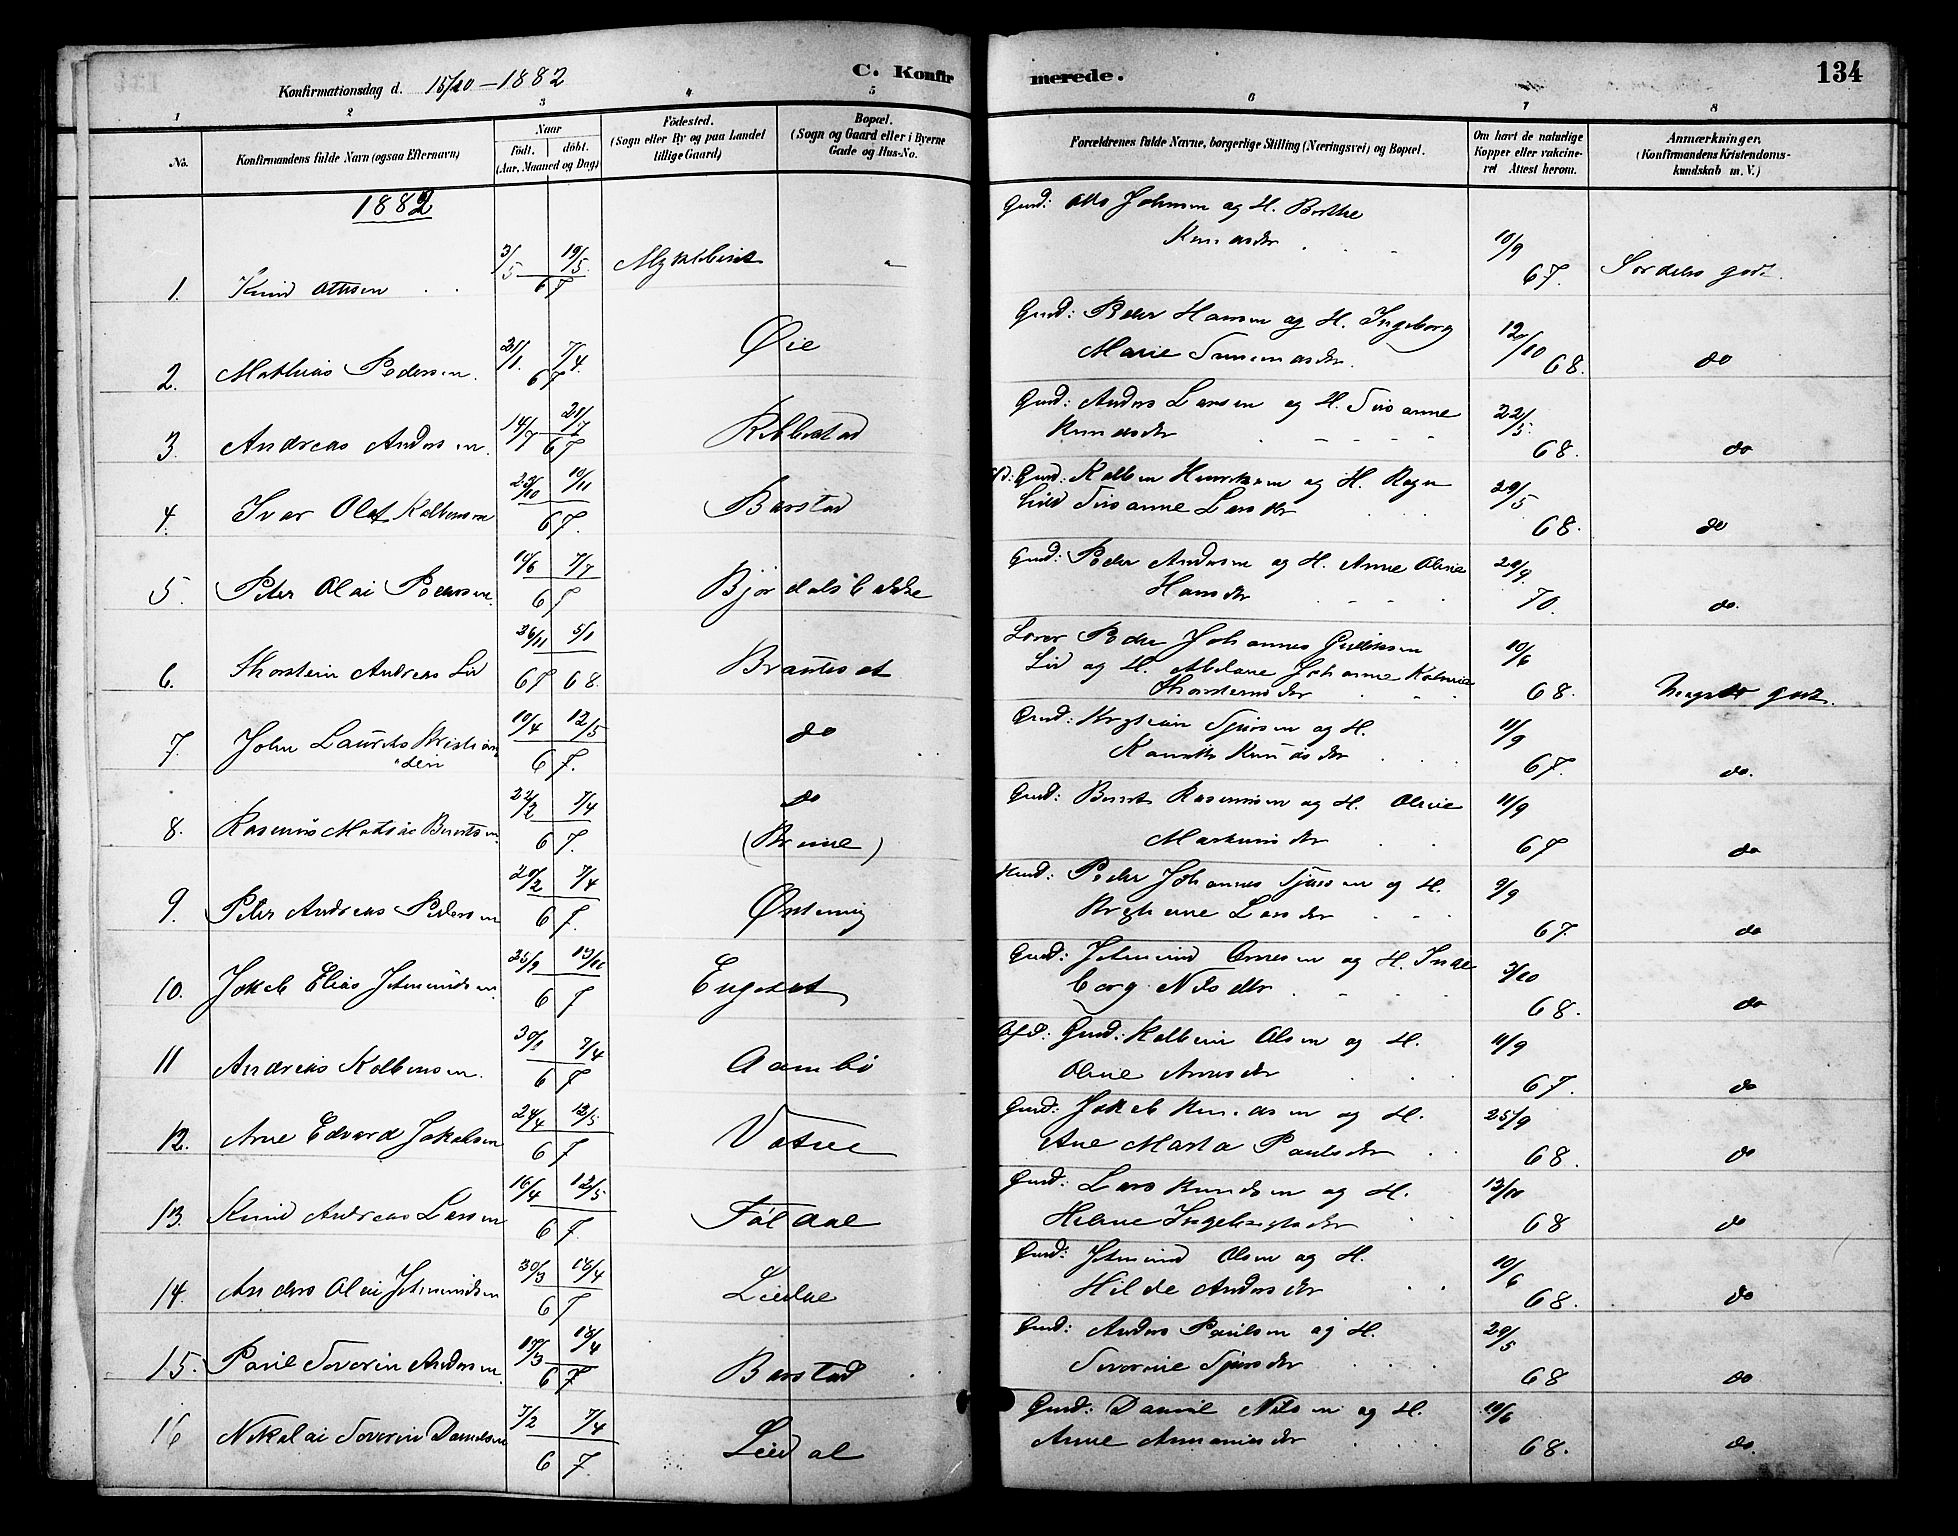 Konfirmationsdag d. 15/10 - 1882
C. Konfir
merede.
134
1 2 3 4 5 6 7 8
No.
Konfirmandens fulde Navn (ogsaa Efternavn)
Naar
födt. döbt.
(Aar, Maaned og Dag)
Födested.
(Sogn eller By og paa Landet
tillige Gaard)
Bopæl.
(Sogn og Gaard eller i Byerne
Gade og Hus-No.
Forældrenes fulde Navne, borgerlige Stilling (Næringsvei) og Bopæl.
Om havt de naturlige
Kopper eller vakcine-
ret Attest herom.
Anmærkninger.
(Konfirmandens Kristendoms-
kundskab m. V.)
1882
Gmd: Otto Johnsen og H. Berthe
Knudsdtr
1. Knud Ottesen 3/5 19/5 67 Myklebust 10/9 67. Særdeles godt.
Gmd: Peder Hansen og H. Ingeborg
Marie
2. Mathias Pedersen. 21/1 7/4 67 Øie 12/10 68. do
Gmd: Anders Larsen og H. Susanne
Knudsdtr
3. Andreas Andersen. 14/7 21/7 67 22/5 68. do
Gmd: Kolbein og H. Ragn
hild Susanne Larsdtr
4. Ivar Olaf Kolbensen 10/11 67. Barstad 20/5 68. do
Gmd: Peder Andersen og H. Anne Oline
Hansdtr
5. Peter Olai Pedersen. 10/6 7/7 67 Bjørdalsbakke 20/9 70. do.
Lærer Peder Johannes
Lid og H. Abelone Johanne
Thorsteinsdtr
6. Thorstein Andreas Lid 26/11 67 5/1 68. Brauteset 10/6 68. Meget godt.
Gmd: Kristian Sjursen og H.
Knudsdtr
7. John Laurits Kristian
"sen 10/4 12/5 67. do 11/9 67. do.
Gmd: Bernt Rasmussen og H. Oline
Markusdtr
8. Rasmus Mathias Berntsen. 22/2 7/4 67. do 11/9 67 do
Gmd: Peder Johannes Sjursen og H.
Larsdtr
9. Peter Andreas Pedersen 20/2 7/4 67. 9/9 67. do
Gmd: Jetmund Arnesen og H. Inge
borg Nilsdtr.
10. Jakob Elias Jetmundsen 25/9 13/10 67 Engeset 3/10 68. do
Gmd: Kolbein Olsen og H.
Oline Arnesdtr
11 Andreas Kolbensen. 30/1 7/4 67 11/9 67. do
Gmd: Jakob Knudsen og H.
Ane Marta Paulsdtr
12. Arne Edvard Jakobsen 24/4 12/5 67 Vatne 25/9 68. do
Gmd: Lars Knudsen og H.
13. Knud Andreas Larsen 16/4 12/5 67. 13/10 68 do
Gmd: Jetmund Olsen og H.
Hilde Andersdtr
14. Anders Olai Jetmundsen 30/3 18/4 67 Liedal 10/6 68. do
Gmd: Anders Paulsen og H.
Severine Sjursdtr
15. Paul Severin Andersen. 17/3 18/4 67 Barstad 20/5 68 do
Gmd: Daniel Nilsen og H.
Anne Ananiasdtr
16 Nikolai Severin Danielsen 7/2 7/4 67. Liedal 10/6 68. do.